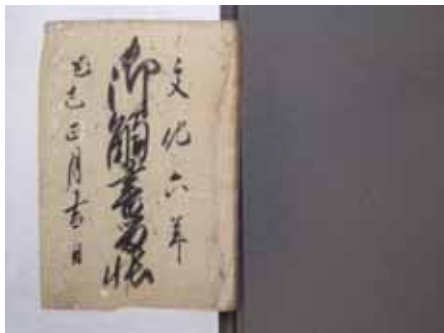 文化六年
御觸書留帳
己巳正月吉日